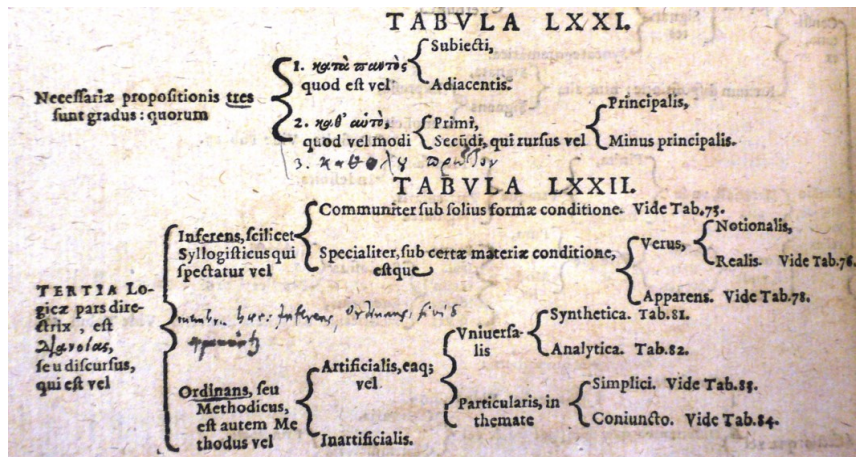 TABVLA LXXI.
Necessariæ propositionis tres
sunt gradus: quorum
1. κατὰ παντὸς
quod est vel
Subiecti,
Adiacentis.
2. καθ' αὑτὸ,
quod vel modi
Primi,
Secūdi, qui rursus vel
Principalis,
Minus principalis.
3. καθόλου πρῶτον
TABVLA LXXII.
TERTIA Lo-
gicæ pars dire-
ctrix, est
Διανοίας,
seu discursus,
qui est vel
Inferens, scilicet
Syllogisticus qui
spectatur vel
Communiter sub solius formæ conditione. Vide Tab.73.
Specialiter, sub certæ materiæ conditione,
estque
Verus,
Notionalis,
Realis. Vide Tab.76.
Apparens. Vide Tab.78.
Inferens, Ordinans,
Ordinans, seu
Methodicus,
est autem Me
thodus vel
Artificialis, eaq;
vel
Vniuersa-
lis
Synthetica. Tab.81.
Analytica. Tab.82.
Particularis, in
themate
Simplici. Vide Tab.83.
Coniuncto. Vide Tab.84.
Inartificialis.